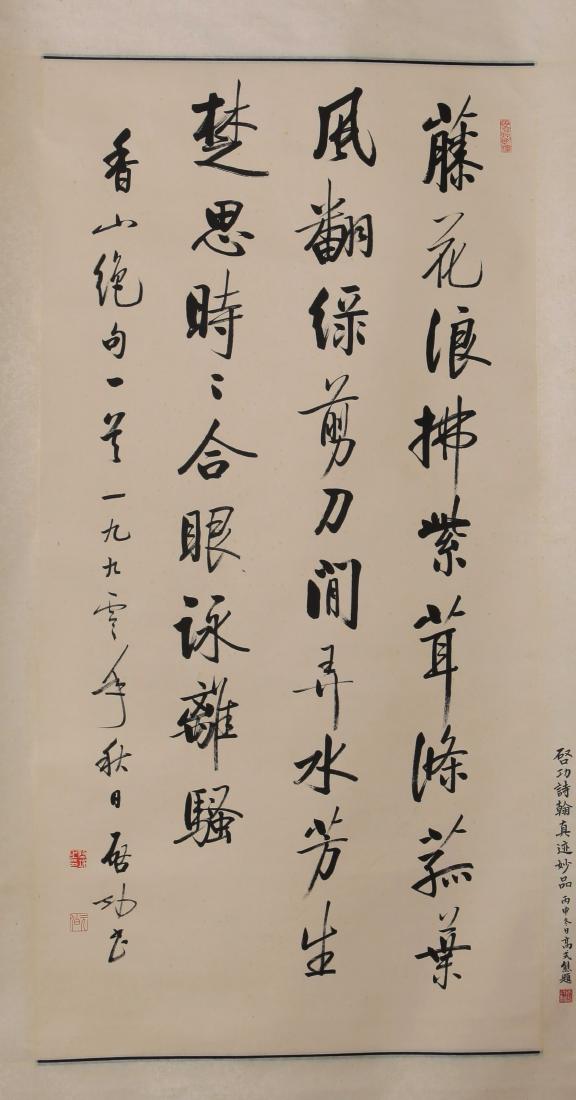 藤花浪拂紫茸條菰葉
風翻綠剪刀閒弄水芳生
楚思時〻合眼詠離騷
香山絕句一首一九九零年秋日啟功書
啓功詩翰真迹妙品丙申冬日高天題